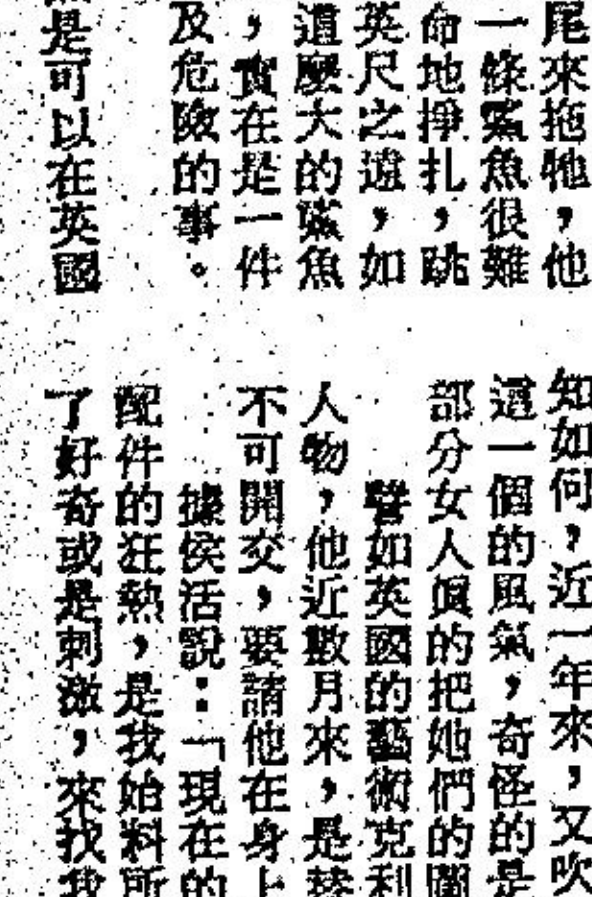 尾來拖牠，他
一條鯊魚很難
命地掙扎，跳
英尺之遠，如
這麼大的鯊魚
，實在是一件
及危險的事。
是可以在英國
知如何，近一年來，又吹
這一個的風氣，奇怪的是
部分女人真的把她們的
譬如英國的藝術克利
人物，他近數月來，是替
不可開交，要請他在身上
據侯活說：「現在的
配件的狂熱，是我始料所
了好奇或是刺激，來找我